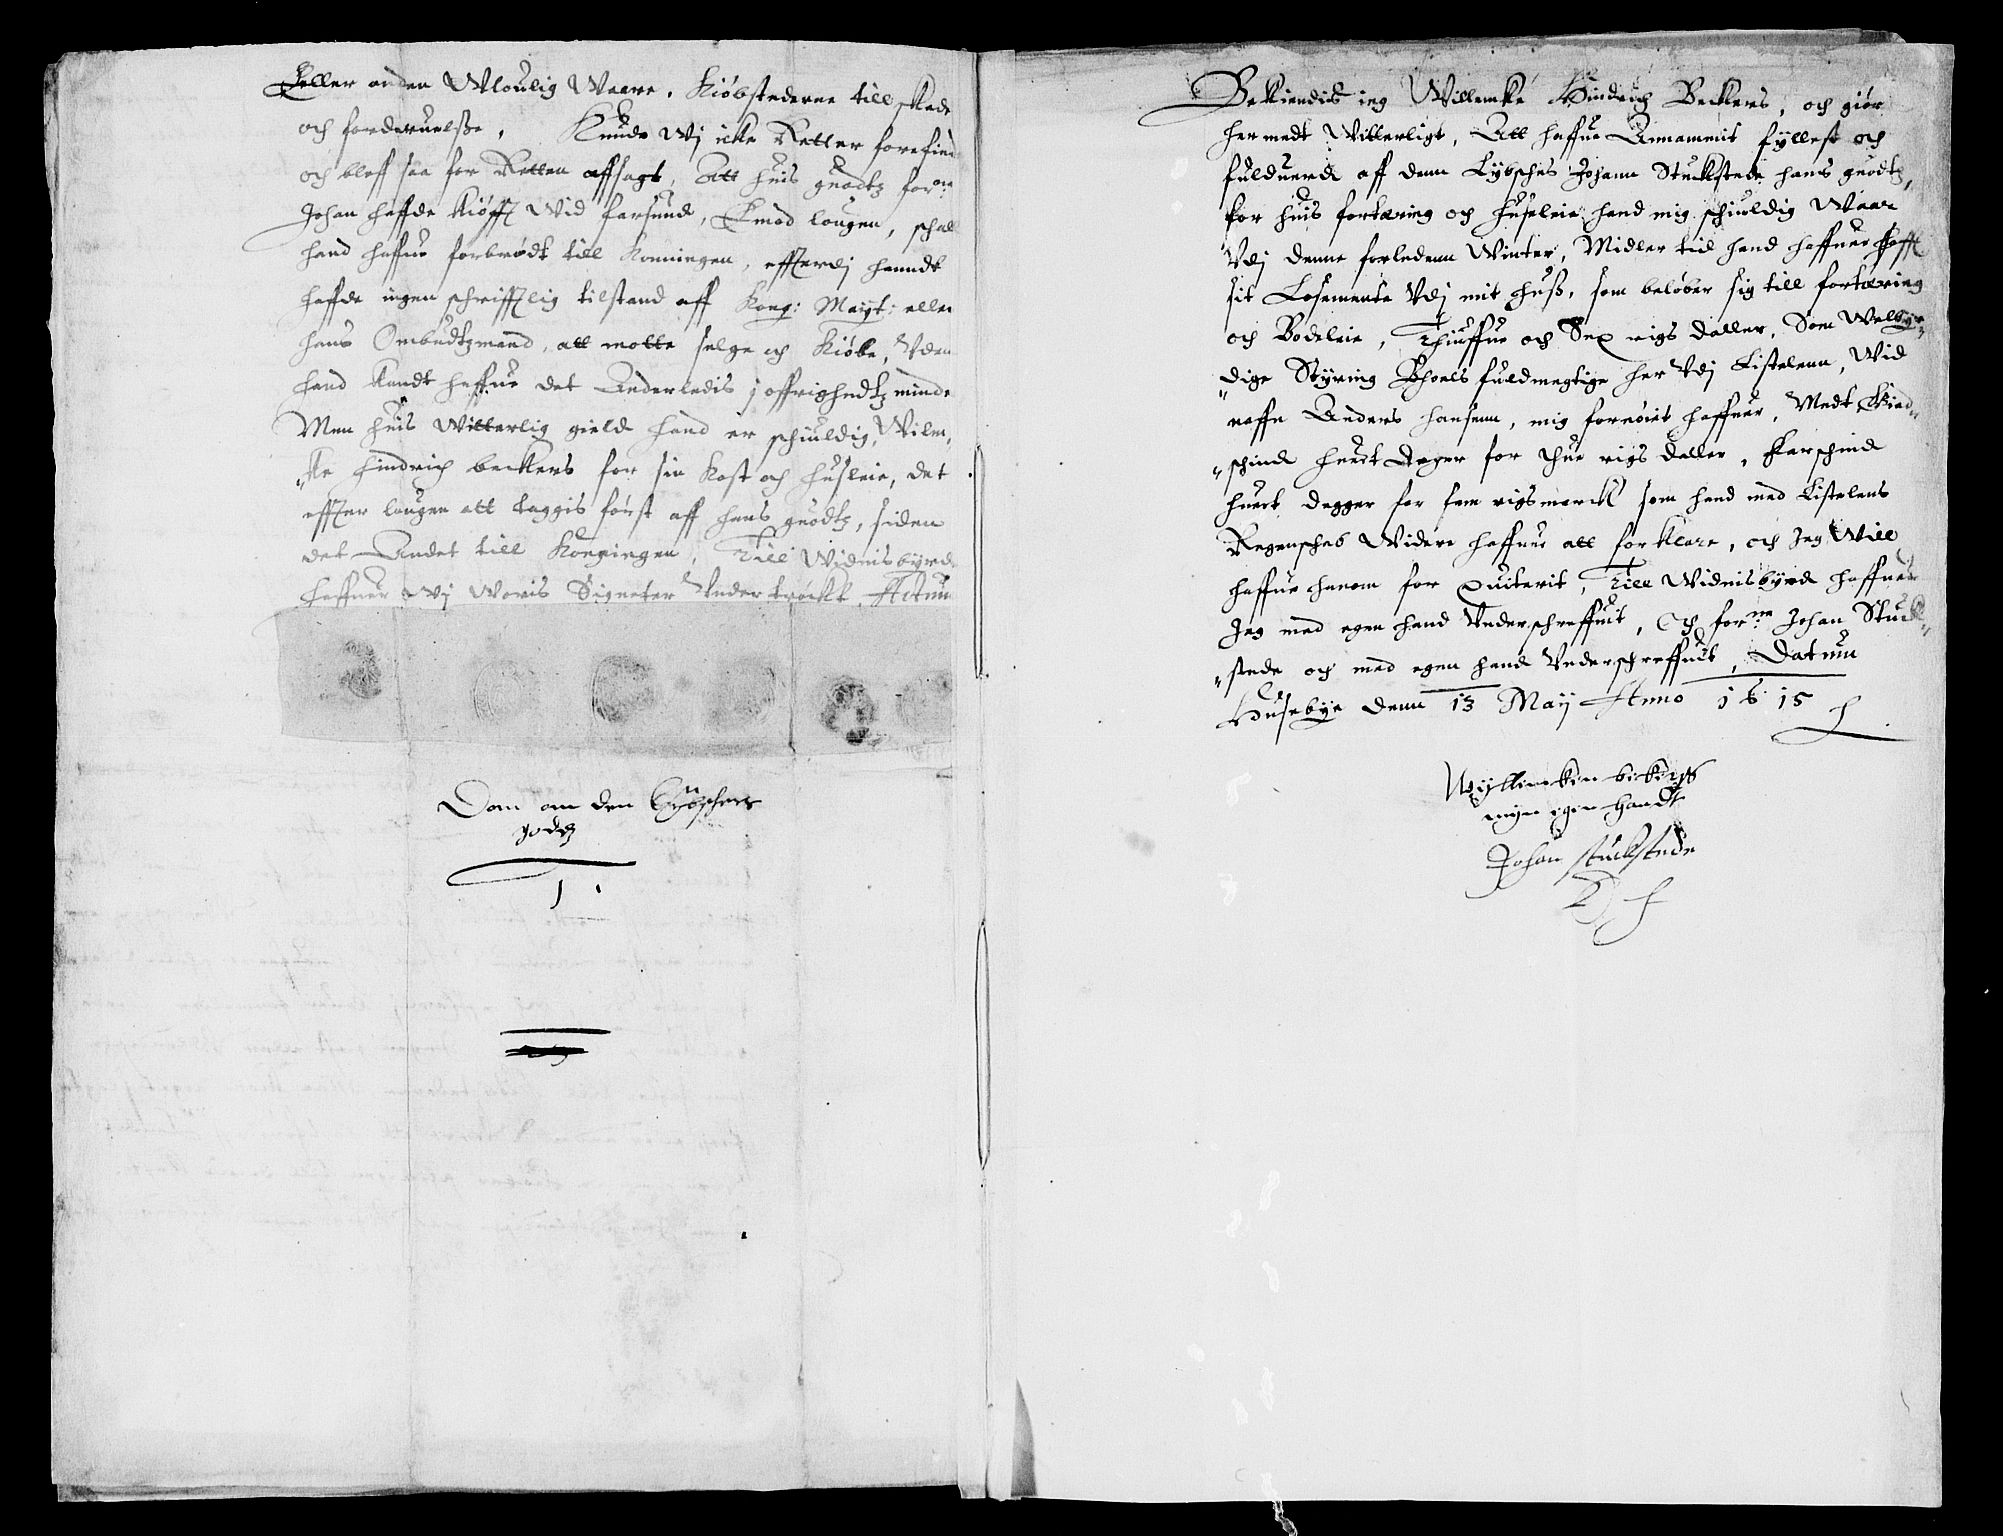 Eller anden Wloulig Waare, Kiøbstederne till skade
och forderuelsße, Kunde Wj icke Retter forefinde
och bleff saa for Retten affsagt, Att huis guodtz forne
Johan haffde kiøfft Wid farsund, Emod lougen, schall
hand haffue forbrødt till Konningen, effterdj handt
haffde ingen schrifftlig tilstand aff Kong: Maiyt: eller
hans Ombudtzmand, att motte selge och Kiøbe, Vden
hand kandt haffue det Anderledis j offrighedtz minde
Men huis Witterlig gield hand er schiuldig, Wilm,
"ke Hindrich beckers for sin kost och husleie, det
effter lougen att taggis først aff hans guodtz, siden
det Andet till Konningen, Till Widnisbyrd
haffuer Wj Woris Signeter Vnder tröckt, Actum
Dom om den Lybschers
godtz
Bekiendis ieg Willemke Hindrich Beckers, och giør
her medt Witterligt, Att haffue Annammit fyllest och
fulduerd aff denn Lybsches Johann Stuckstede hans guodtz,
for huis fortæring och Husleie hand mig schiuldig Waar
Vdj denne forledenn Winter, Midler tid hand haffuer hafft
sit Losemente Vdj mit Huß, som beløber sig till fortæring
och Bodeleie, Thiuffue och Sex rigs daller, Som Welbyr,,
"dige Styring Bhoels fuldmegtige her Vdj Listelenn, Wid
naffn Anders Hansenn, mig fornøiet haffuer, Medt
"schind huert deger for thue rigs daller, Faarschind
huert degger for fem rigsmarck som hand med Listelens
Regenschab Widere haffuer att forklare, och Jeg Will
haffue hanom for Quiterit, Till Widnisbyrd haffuer
Jeg med egen hand Vnderschreffuit, Och forne Johan Stuck,,
"stede och med egen hand Vnderschreffuit, Datum
Husebye denn 13 Maij Anno 1615
Wyllimeken bickerss
myn egen handt
Johan stuckstede